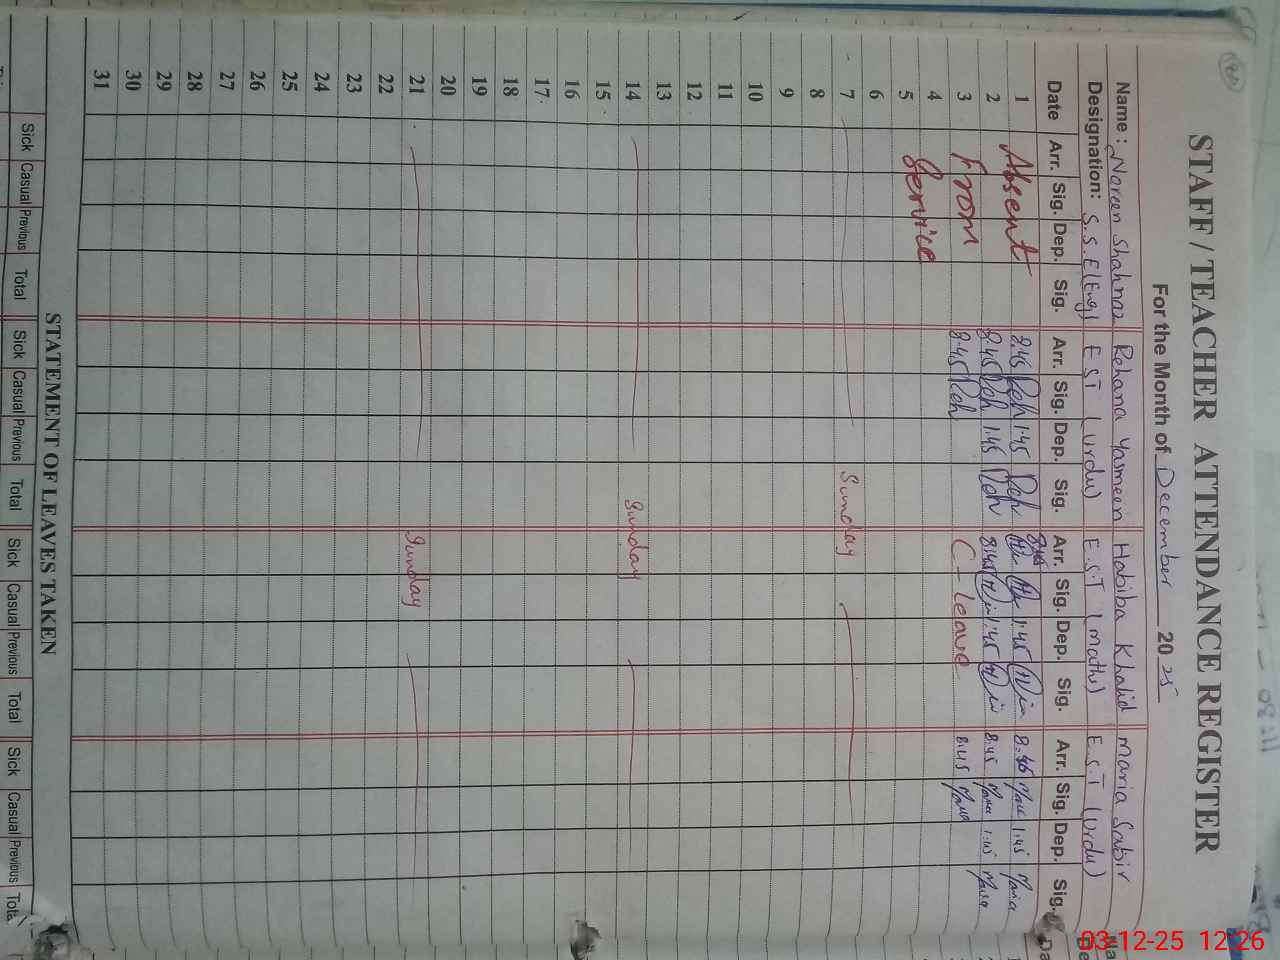 STAFF / TEACHER ATTENDANCE REGISTER
For the Month of December 2025
Name : Noreen Shahnaz Rehana Yasmeen Habiba Khalid Maria Sabir Na
Designation: S.S.E (Eng) E S T (Urdu) E.S.T (Maths) E.S.T (Urdu) De
Date Arr. Sig. Dep. Sig. Arr. Sig. Dep. Sig. Arr. Sig. Dep. Sig. Arr. Sig. Dep. Sig. Da
8:45
1 Absent 8:45 Reh 1:45 Reh 1:45 8:46 Maria 1:45 Maria
2 8:45 Reh 1:45 Reh 8:45 1:45 8:45 Maria 1:45 Maria
3 From 8:45 Reh C - leave 8:45 Maria
4 Service
5
6
7 Sunday
8
9
10
11
12
13
14 Sunday
15
16
17
18
19
20
21 Sunday
22
23
24
25
26
27
28
29
30
31
STATEMENT OF LEAVES TAKEN
Sick Casual Previous Total Sick Casual Previous Total Sick Casual Previous Total Sick Casual Previous Tota
03-12-25 12:26